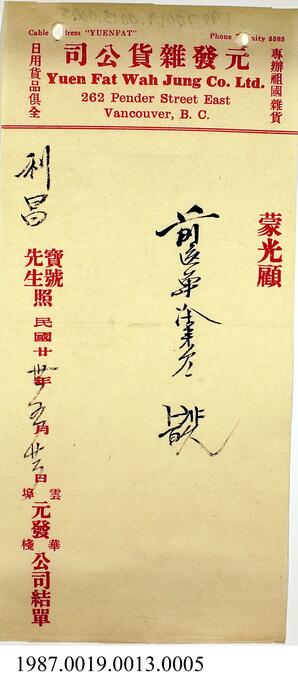 1987.0019.0013.0005
Cable Address "YUENFAT"
Phone Trinity 5583
元發雜貨公司
專辦祖國雜貨
日用貨品俱全
Yuen Fat Wah Jung Co. Ltd.
262 Pender Street East
Vancouver, B. C.
蒙光顧
前區單
利昌
寶號
先生
照
民國廿卅年五月廿六日
雲埠
元發
華棧
公司結單
1987.0019.0013.0005